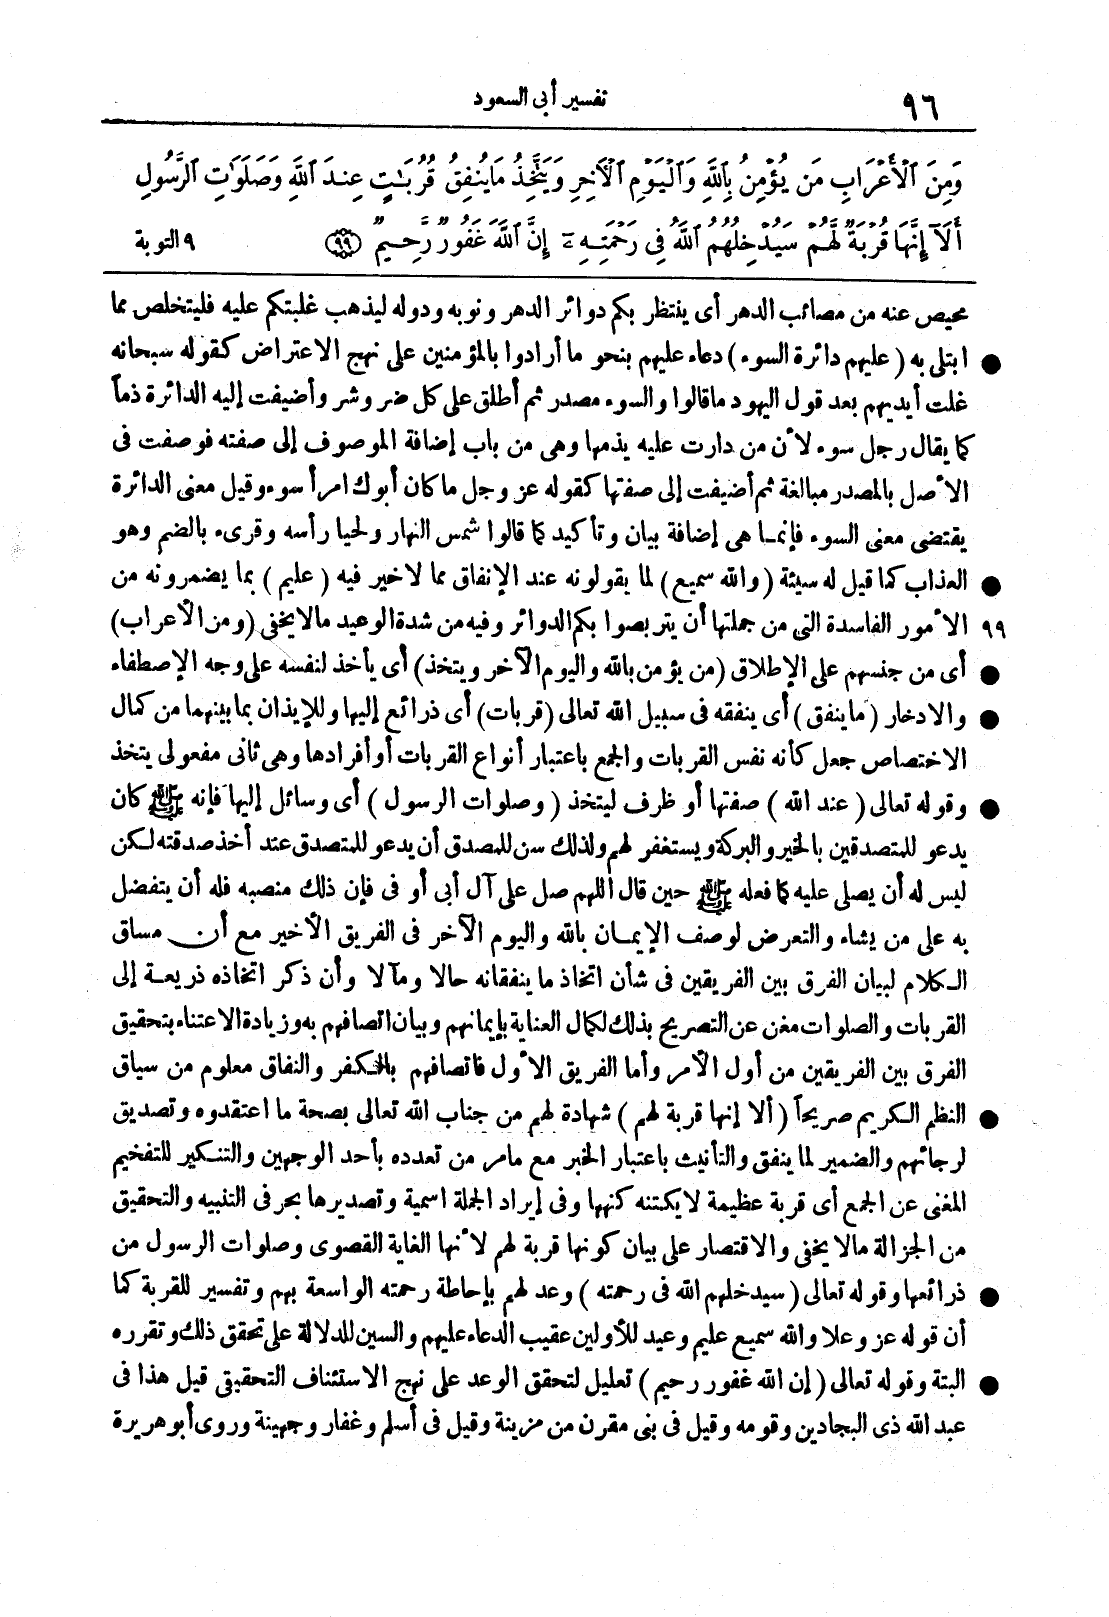 ٩٦
تفسير أبى السعود
وَمِنَ ٱلْأَعْرَابِ مَن يُؤْمِنُ بِٱللَّهِ وَٱلْيَوْمِ ٱلْآخِرِ وَيَتَّخِذُ مَا يُنفِقُ قُرُبَـٰتٍ عِندَ ٱللَّهِ وَصَلَوَٰتِ ٱلرَّسُولِ
أَلَآ إِنَّهَا قُرْبَةٌ لَّهُمْ سَيُدْخِلُهُمُ ٱللَّهُ فِى رَحْمَتِهِۦٓ إِنَّ ٱللَّهَ غَفُورٌ رَّحِيمٌ (٩٩) ٩ التوبة
محيص عنه من مصائب الدهر أى ينتظر بكم دوائر الدهر ونوبه ودوله ليذهب غلبتكم عليه فليتخلص مما
● ابتلى به (عليهم دائرة السوء) دعاء عليهم بنحو ما أرادوا بالمؤمنين على نهج الاعتراض كقوله سبحانه
غلت أيديهم بعد قول اليهود ما قالوا والسوء مصدر ثم أطلق على كل ضر وشر وأضيفت إليه الدائرة ذماً
كما يقال رجل سوء لأن من دارت عليه يذمها وهى من باب إضافة الموصوف إلى صفته فوصفت فى
الأصل بالمصدر مبالغة ثم أضيفت إلى صفتها كقوله عز وجل ما كان أبوك امرأ سوء وقيل معنى الدائرة
يقتضى معنى السوء فإنما هى إضافة بيان وتأكيد كما قالوا شمس النهار ولحيا رأسه وقرىء بالضم وهو
● العذاب كما قيل له سيئة (والله سميع) لما يقولونه عند الإنفاق مما لا خير فيه (عليم) بما يضمرونه من
٩٩ الأمور الفاسدة التى من جملتها أن يتربصوا بكم الدوائر وفيه من شدة الوعيد مالا يخفى (ومن الأعراب)
● أى من جنسهم على الإطلاق (من يؤمن بالله واليوم الآخر ويتخذ) أى يأخذ لنفسه على وجه الإصطفاء
● والادخار (ما ينفق) أى ينفقه فى سبيل الله تعالى (قربات) أى ذرائع إليها وللإيذان بما بينهما من كمال
الاختصاص جعل كأنه نفس القربات والجمع باعتبار أنواع القربات أو أفرادها وهى ثانى مفعولى يتخذ
● وقوله تعالى (عند الله) صفتها أو ظرف ليتخذ (وصلوات الرسول) أى وسائل إليها فإنه ﷺ كان
يدعو للمتصدقين بالخير والبركة ويستغفر لهم ولذلك سن للمصدق أن يدعو للمتصدق عند أخذ صدقته لكن
ليس له أن يصلى عليه كما فعله ﷺ حين قال اللهم صل على آل أبى أوفى فإن ذلك منصبه فله أن يتفضل
به على من يشاء والتعرض لوصف الإيمان بالله واليوم الآخر فى الفريق الأخير مع أن مساق
الكلام لبيان الفرق بين الفريقين فى شأن اتخاذ ما ينفقانه حالا ومآلا وأن ذكر اتخاذه ذريعة إلى
القربات والصلوات مغن عن التصريح بذلك لكمال العناية بإيمانهم وبيان اتصافهم به وزيادة الاعتناء بتحقيق
الفرق بين الفريقين من أول الأمر وأما الفريق الأول فاتصافهم بالكفر والنفاق معلوم من سياق
● النظم الكريم صريحاً (ألا إنها قربة لهم) شهادة لهم من جناب الله تعالى بصحة ما اعتقدوه وتصديق
لرجائهم والضمير لما ينفق والتأنيث باعتبار الخبر مع مامر من تعدده بأحد الوجهين والتنكير للتفخيم
المغنى عن الجمع أى قربة عظيمة لا يكتنه كنهها وفى إيراد الجملة اسمية وتصديرها بحرفى التنبيه والتحقيق
من الجزالة مالا يخفى والاقتصار على بيان كونها قربة لهم لأنها الغاية القصوى وصلوات الرسول من
● ذرائعها وقوله تعالى (سيدخلهم الله فى رحمته) وعد لهم بإحاطة رحمته الواسعة بهم وتفسير للقربة كما
أن قوله عز وعلا والله سميع عليم وعيد للأولين عقيب الدعاء عليهم والسين للدلالة على تحقق ذلك وتقرره
● البتة وقوله تعالى (إن الله غفور رحيم) تعليل لتحقق الوعد على نهج الاستئناف التحقيقى قيل هذا فى
عبد الله ذى البجادين وقومه وقيل فى بنى مقرن من مزينة وقيل فى أسلم وغفار وجهينة وروى أبو هريرة